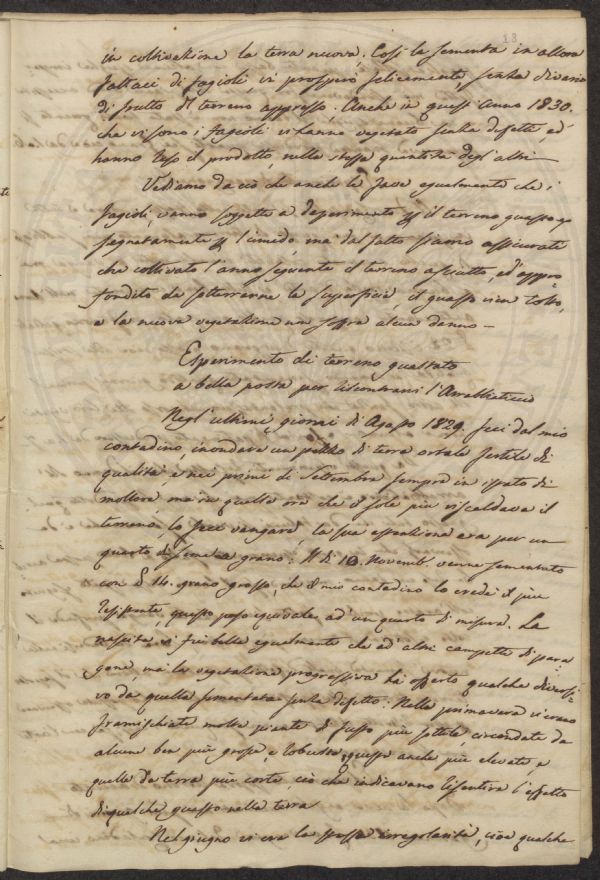 13
in coltivazione la terra nuova. Così la sementa in allora
fattaci di fagioli, vi prosperò felicemente, senza divario
di frutto al terreno appresso. Anche in quest'anno 1830.
che vi sono i fagioli vi hanno vegetato senza difetti, ed
hanno reso il prodotto, nella stessa quantità degl'altri
Vediamo da ciò che anche le fave egualmente che i
fagioli, vanno soggette a deperimento il terreno guasto
segnatamente l'umido, ma dal fatto siamo assicurati
che coltivato l'anno seguente il terreno asciutto, ed appro
fondito da sotterrarne la superficie, il guasto vien tolto,
e la nuova vegetazione non soffra alcun danno
Esperimento di terreno guastato
a bella posta per riscontrarvi l'Arrabbaticcio
Negl'ultimi giorni di Agosto 1829. feci dal mio
contadino, inondare un pezzo di terra ortale fertile di
qualità, e nei primi di Settembre sempre in istato di
mollore, ma in quella ora che il sole più riscaldava il
terreno, lo feci vangare, la sua estensione era per un
quarto di sementa a grano: Il dì 10. Novemb. venne sementato
con 14. grano grosso, che il mio contadino lo crede il più
resistente, questo peso equivale ad un quarto di misura. La
nascita vi fu bella egualmente che ad altri campetti di para
gone, ma la vegetazione progressiva ha offerto qualche diversi
vo da quella sementata senza difetto: Nella primavera vi erano
framischiate molte piante di fusto più sottile, circondate da
alcune ben più grosse, e robuste, queste anche più elevate, e
quelle da terra più corte, ciò che indicavano risentire l'effetto
di qualche guasto nella terra
Nel giugno vi era la stessa irregolarità, cioè qualche